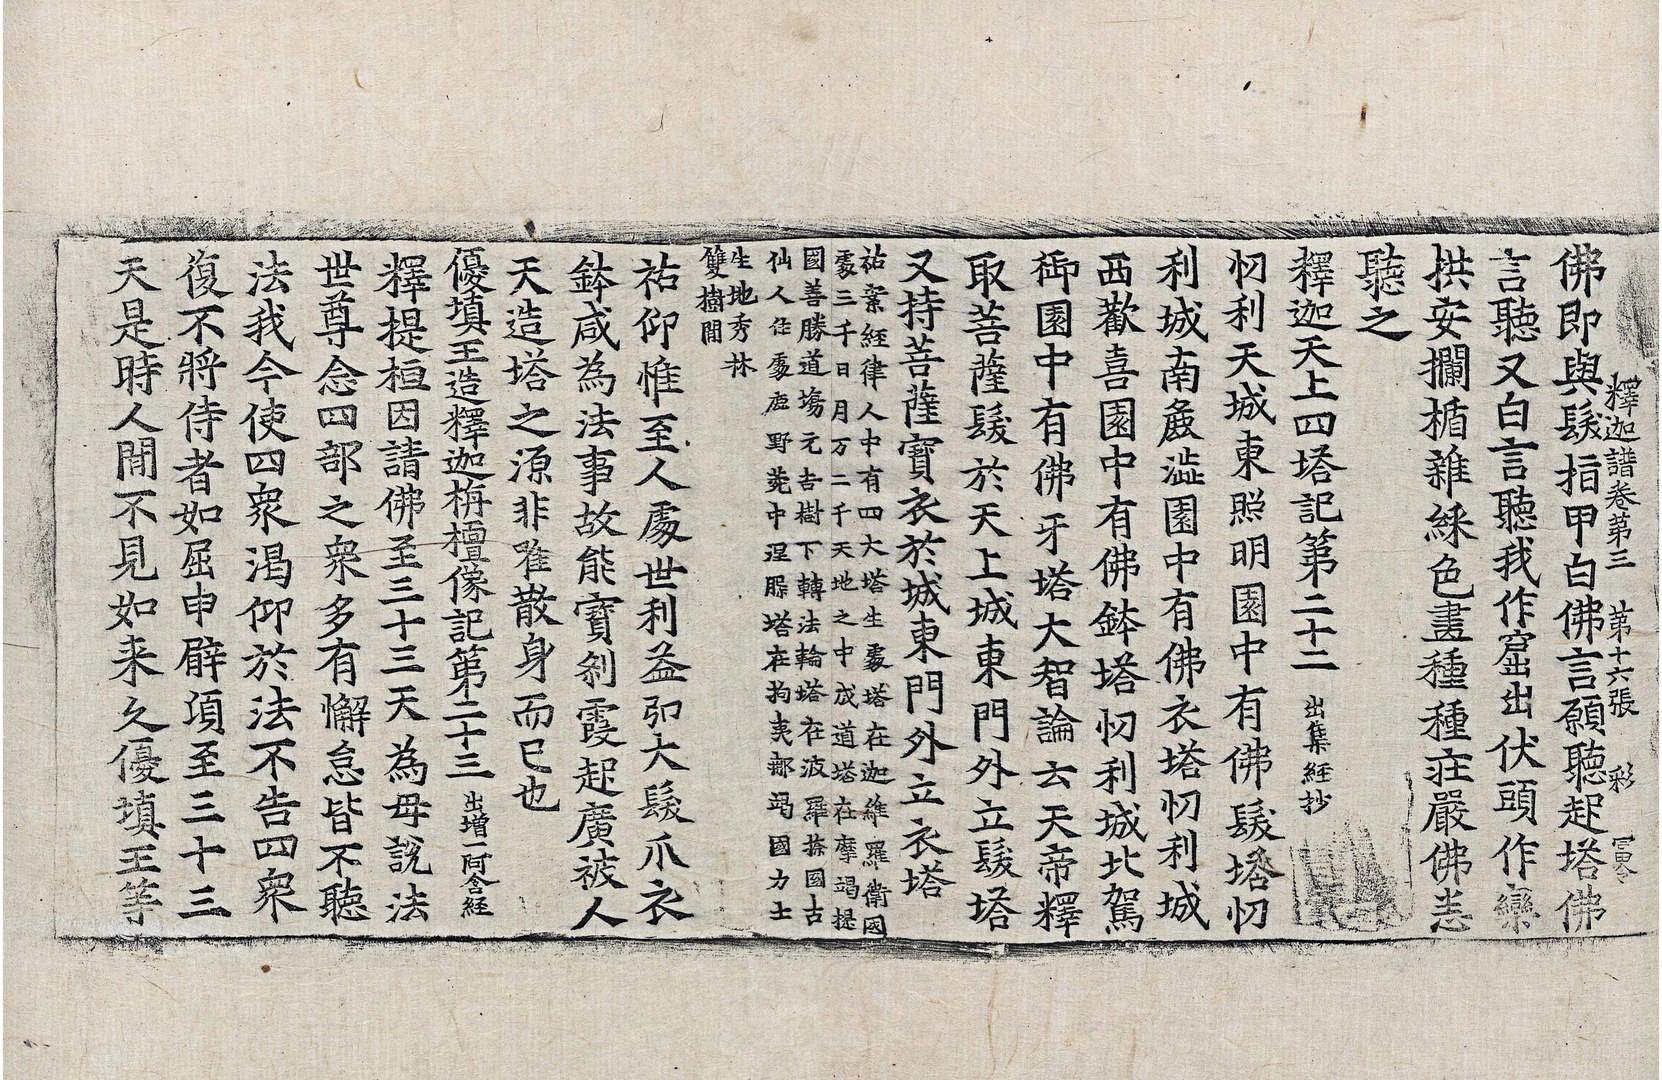 釋迦譜卷第三 第十六張 彩
佛即與髮指甲白佛言願聽起塔佛
言聽又白言聽我作窟出伏頭作欒
拱安攔楯雜綵色畫種種莊嚴佛悉
聽之
釋迦天上四塔記第二十二 出集經抄
忉利天城東照明園中有佛髮塔忉
利城南麁澁園中有佛衣塔忉利城
西歡喜園中有佛鉢塔忉利城北駕
御園中有佛牙塔大智論云天帝釋
取菩薩髮於天上城東門外立髮塔
又持菩薩寶衣於城東門外立衣塔
祐案經律人中有四大塔生處塔在迦維羅衛國
處三千日月万二千天地之中成道塔在摩竭提
國善勝道場元吉樹下轉法輪塔在波羅捺國古
仙人住處鹿野菀中涅槃塔在拘夷那竭國力士
生地秀林
雙樹間
祐仰惟至人處世利益弘大髮爪衣
鉢咸為法事故能寶刹霞起廣被人
天造塔之源非唯散身而已也
優填王造釋迦栴檀像記第二十三 出增一阿含經
釋提桓因請佛至三十三天為母說法
世尊念四部之衆多有懈怠皆不聽
法我今使四衆渴仰於法不告四衆
復不將侍者如屈申臂頃至三十三
天是時人間不見如来久優填王等